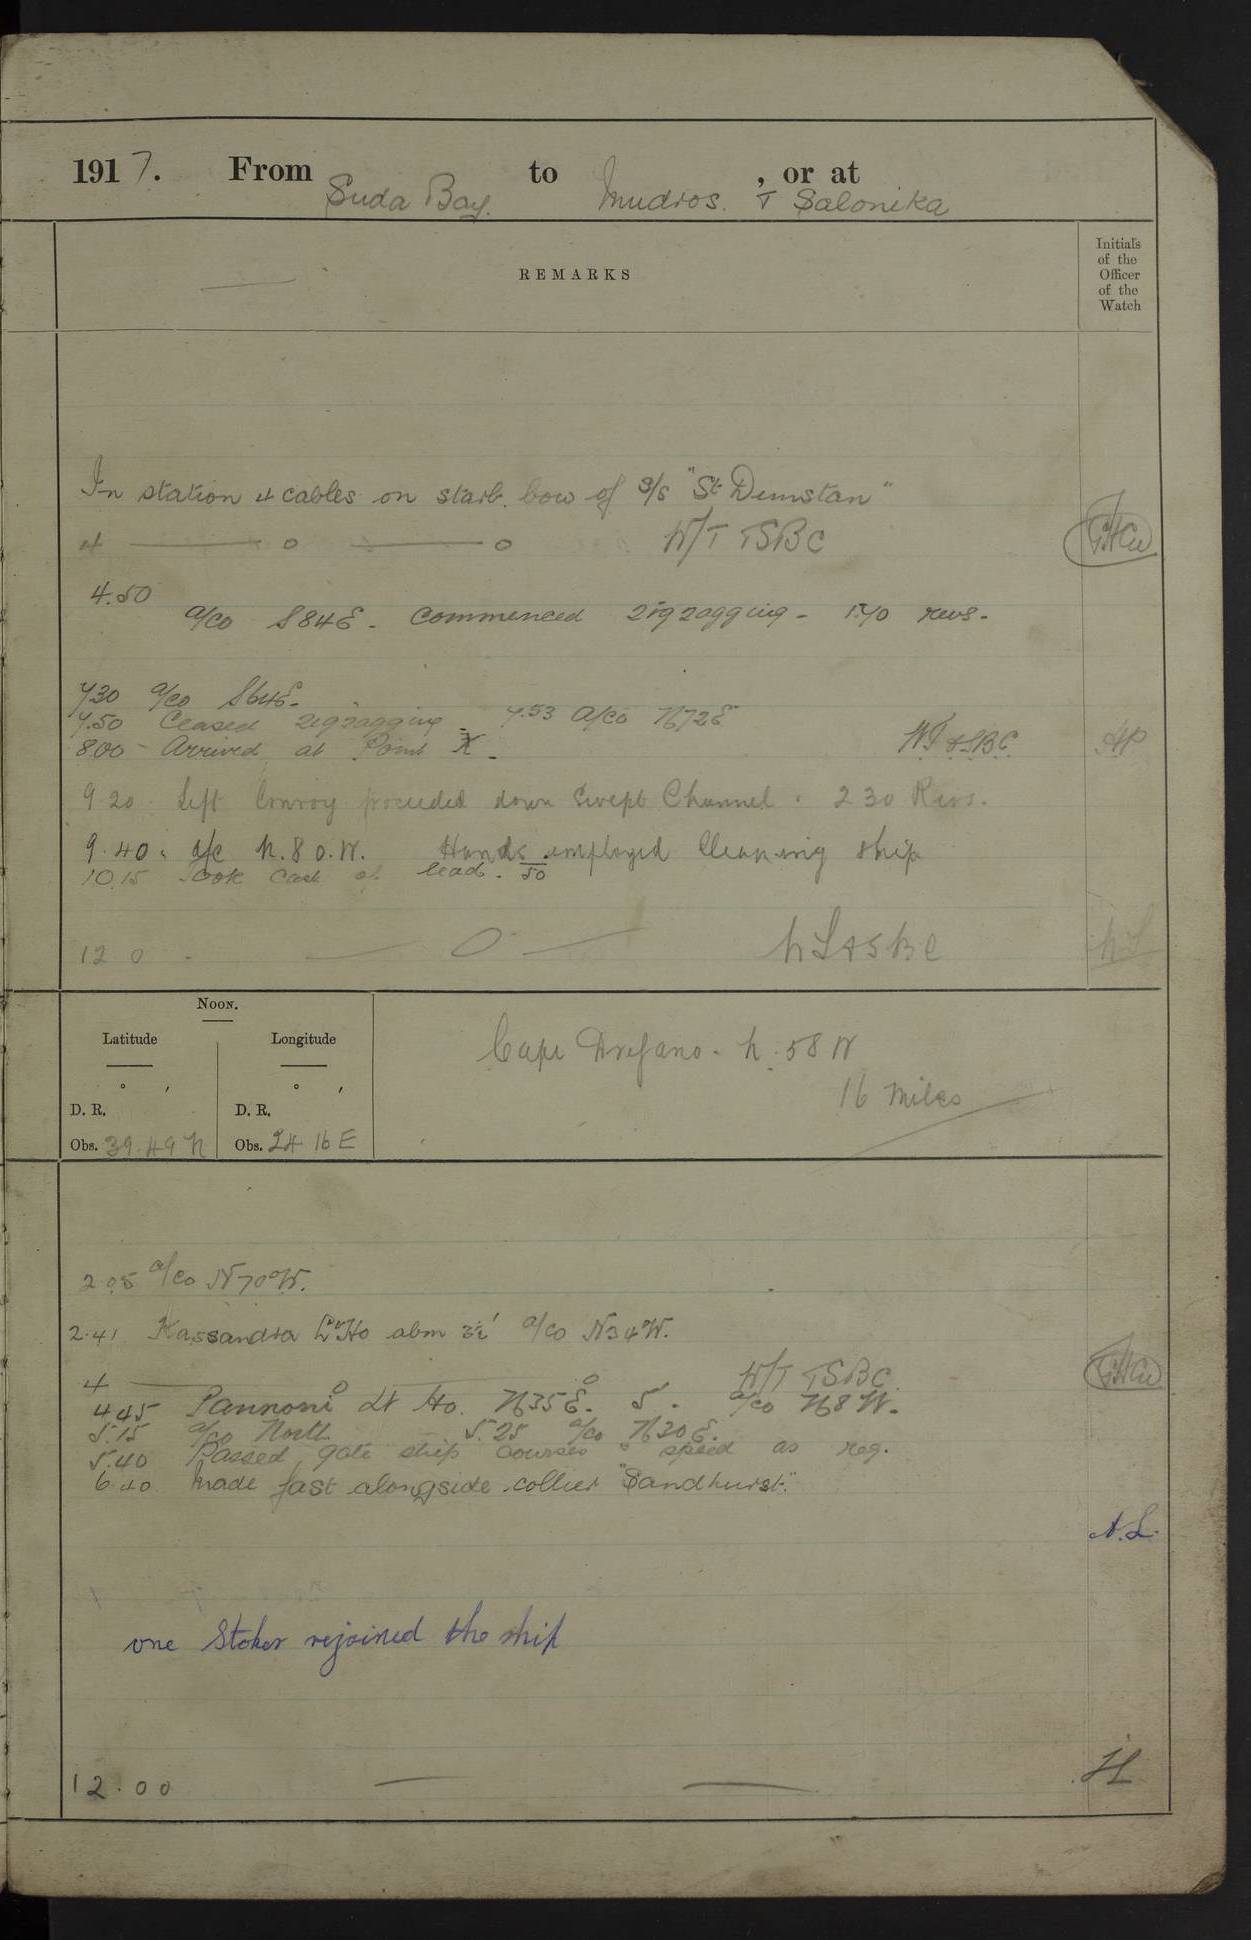 1917. From Suda Bay. to Mudros. & Salonika, or at
REMARKS
Initials of the Officer of the Watch
In station 4 cables on starb. bow of S/S "St Dunstan"
4 —— o —— o W/T TSBC
4.50 a/co S84E. Commenced zigzagging - 170 revs.
7.30 a/co S64E.
7.50 Ceased zigzagging. 7.53 a/co N72E
8.00 - Arrived at Point X. WT &SBC
9 20. Left Convoy proceeded down Swept Channel. 230 Revs.
9.40. a/c N.80.W. Hands employed Cleaning ship
10.15 Took cast of lead. 50
12 0 - — O — NL&SBC NL
Noon.
Latitude Longitude
° ' ° '
D. R. D. R.
Obs. 39.49 N Obs. 24 16 E
Cape Drepano. N. 58 W
16 miles
2 05 a/co N70°W.
2.41 Kassandra Lt Ho abm 3½' a/co N34W.
4 —— o —— o W/T TSBC
4 45 Pannoni Lt Ho. N35E. 5'. a/co N8W.
5.15 a/co North 5.25 a/co N30E.
5.40 Passed gate ship courses & speed as req.
6.40 Made fast alongside collier "Sandhurst".
A.L.
one Stoker rejoined the ship
12.00 — — H